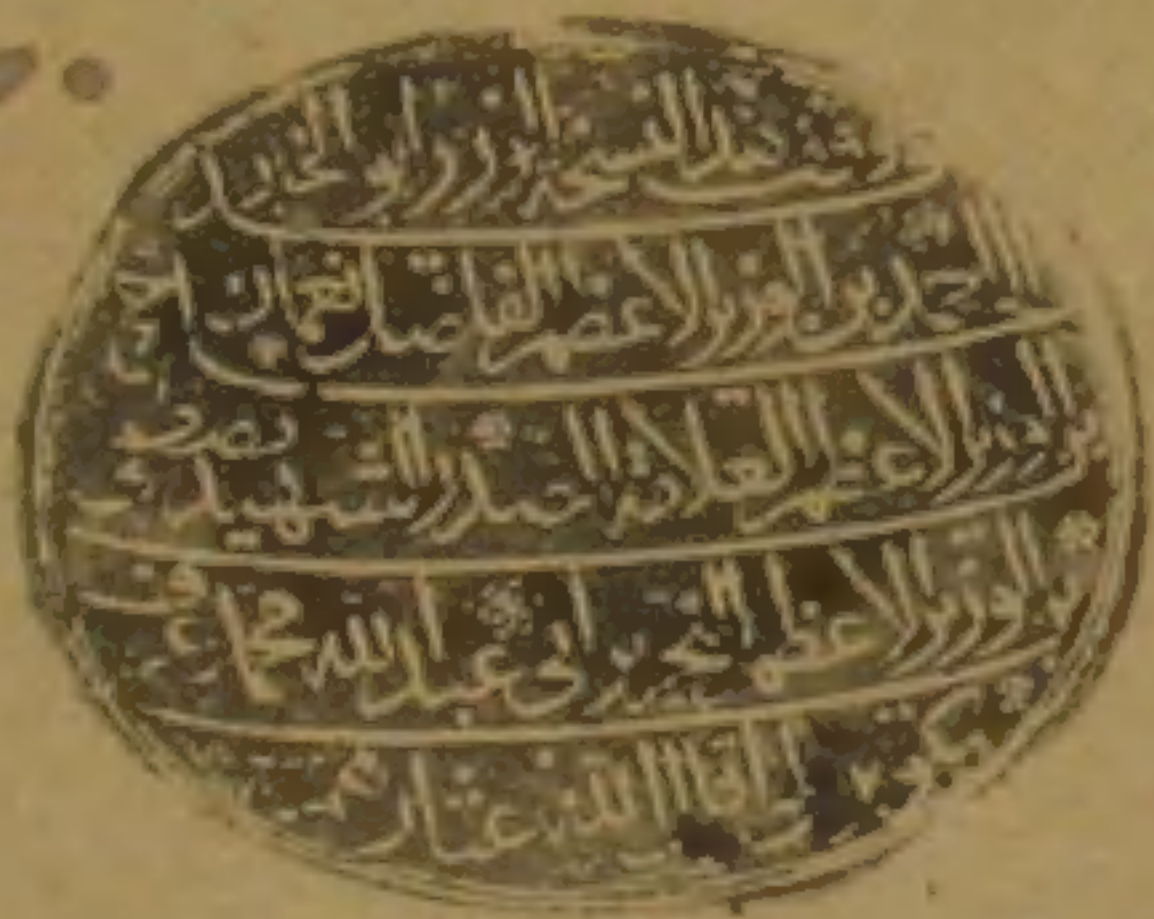 وقف هذه النسخة الوزير ابو الخير احمد
بن الوزير الاعظم الفاضل نعمان
بن الوزير الاعظم العلامة الصدر الشهيد مصطفى
بن الوزير الاعظم النحرير ابي عبد الله محمد عرف
بكوپريلي اقال الله عثارهم